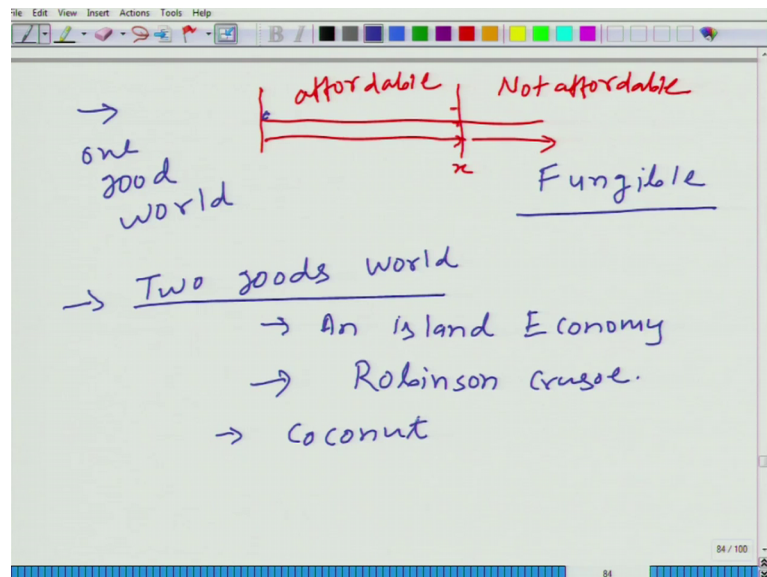 File Edit View Insert Actions Tools Help
B I
affordable Not affordable
→
x
one
good
world
Fungible
→ Two goods world
→ An island Economy
→ Robinson crusoe.
→ Coconut
84 / 100
84